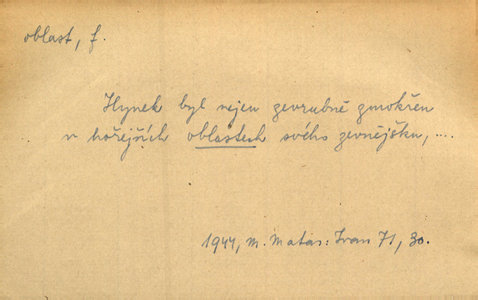 oblast, f.
Hynek byl nejen zevrubně zmokřen
v hořejších oblastech svého zevnějšku, ....
1944, M. Matas: Ivan 71, 30.